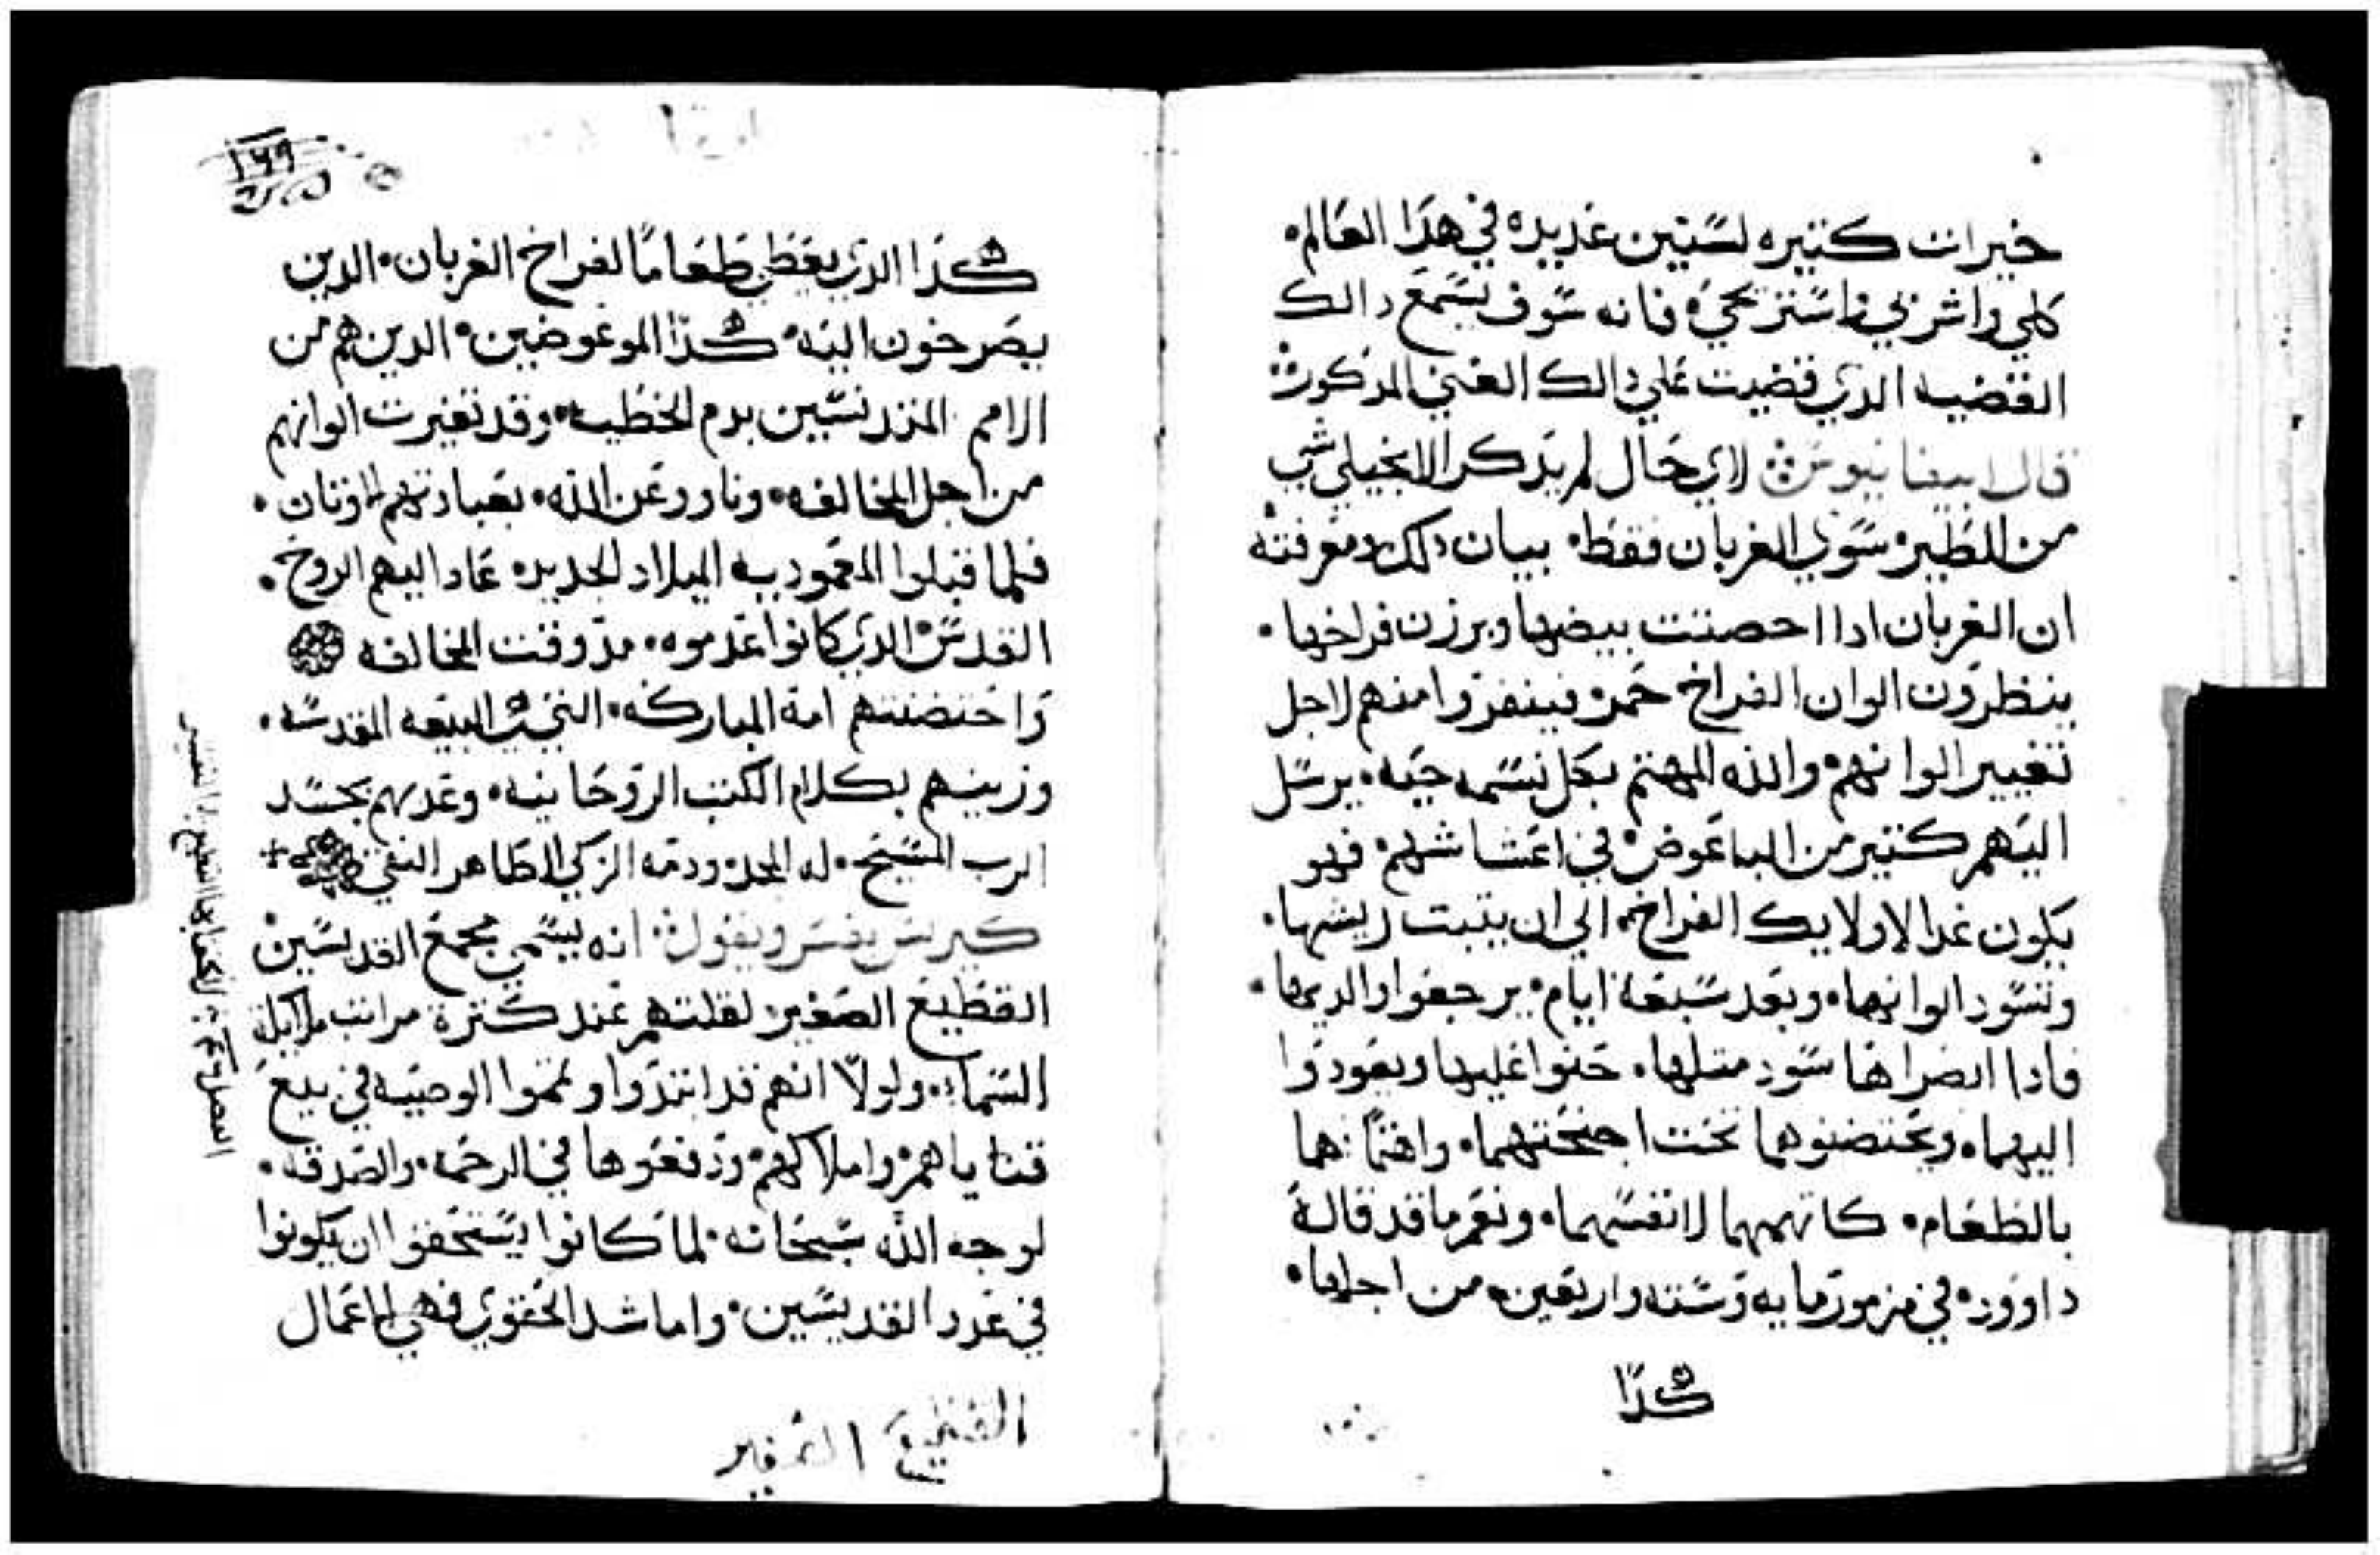 خيرات كتيره لسنين عديده في هدا العالم.
كلي واشربي واستريحي. فانه سوف يسمع دالك
القضيه الدي قضيت علي دالك الغني المدكور
قال ابيفانيوس لاي حال لم يدكر الانجيلي شي
من الطير سوي الغربان فقط. بيان دلك ومعرفته
ان الغربان ادا احصنت بيضها وبرزت فراخها.
ينظرون الوان الفراخ حمر فينفروا منهم لاجل
تغيير الوانهم. والله المهتم بكل نسمه حيه. يرسل
اليهم كتير من الباعوض في اعشاشهم. فهو
يكون غدا لاولايك الفراخ. الي ان ينبت ريشها.
وتسود الوانها. وبعد سبعة ايام. يرجعوا والديها.
فادا ابصراها سود متلها. حنوا عليها ويعودوا
اليهما. ويحتضنوهما تحت اجنحتهما. واهتما بهما
بالطعام. كاتهمهما لانفسهما. ونعم ما قد قاله
داوود. في مزمور مايه وسته واربعين. من اجلها.
هكدا
١٦٩
هكدا الدي يعطي طعاما لفراخ الغربان. الدين
يصرخون اليه. هكدا الموعوضين. الدين هم من
الامم المتدنسين بدم الخطيه. وقد تغيرت الوانهم
من اجل المخالفه. وناوو عن الله. بعبادتهم الاوتان.
فلما قبلوا المعموديه الميلاد الجديده عاد اليهم الروح.
القدس الدي كانوا عدموه. مد وقت المخالفه
واحتضنتهم امه المباركه. التي هي البيعه المقدسه.
وزينهم بكلام الكتب الروحانيه. وغديهم بجسد
الرب المسيح. له المجد ودمه الزكي الطاهر النقي +
كيرلس يفسر ويقول انه يسمي مجمع القديسين
القطيع الصغير لقلتهم عند كترة مراتب ملايكة
السماء. ولولا انهم قد ابتدوا وتمموا الوصيه في بيع
قناياهم واملاكهم. ودفعوها في الرحمه. والصدقه.
لوجه الله سبحانه. لما كانوا يستحقوا ان يكونوا
في عدد القديسين. واما شد الحقوي فهي الاعمال
القطيع الصغير